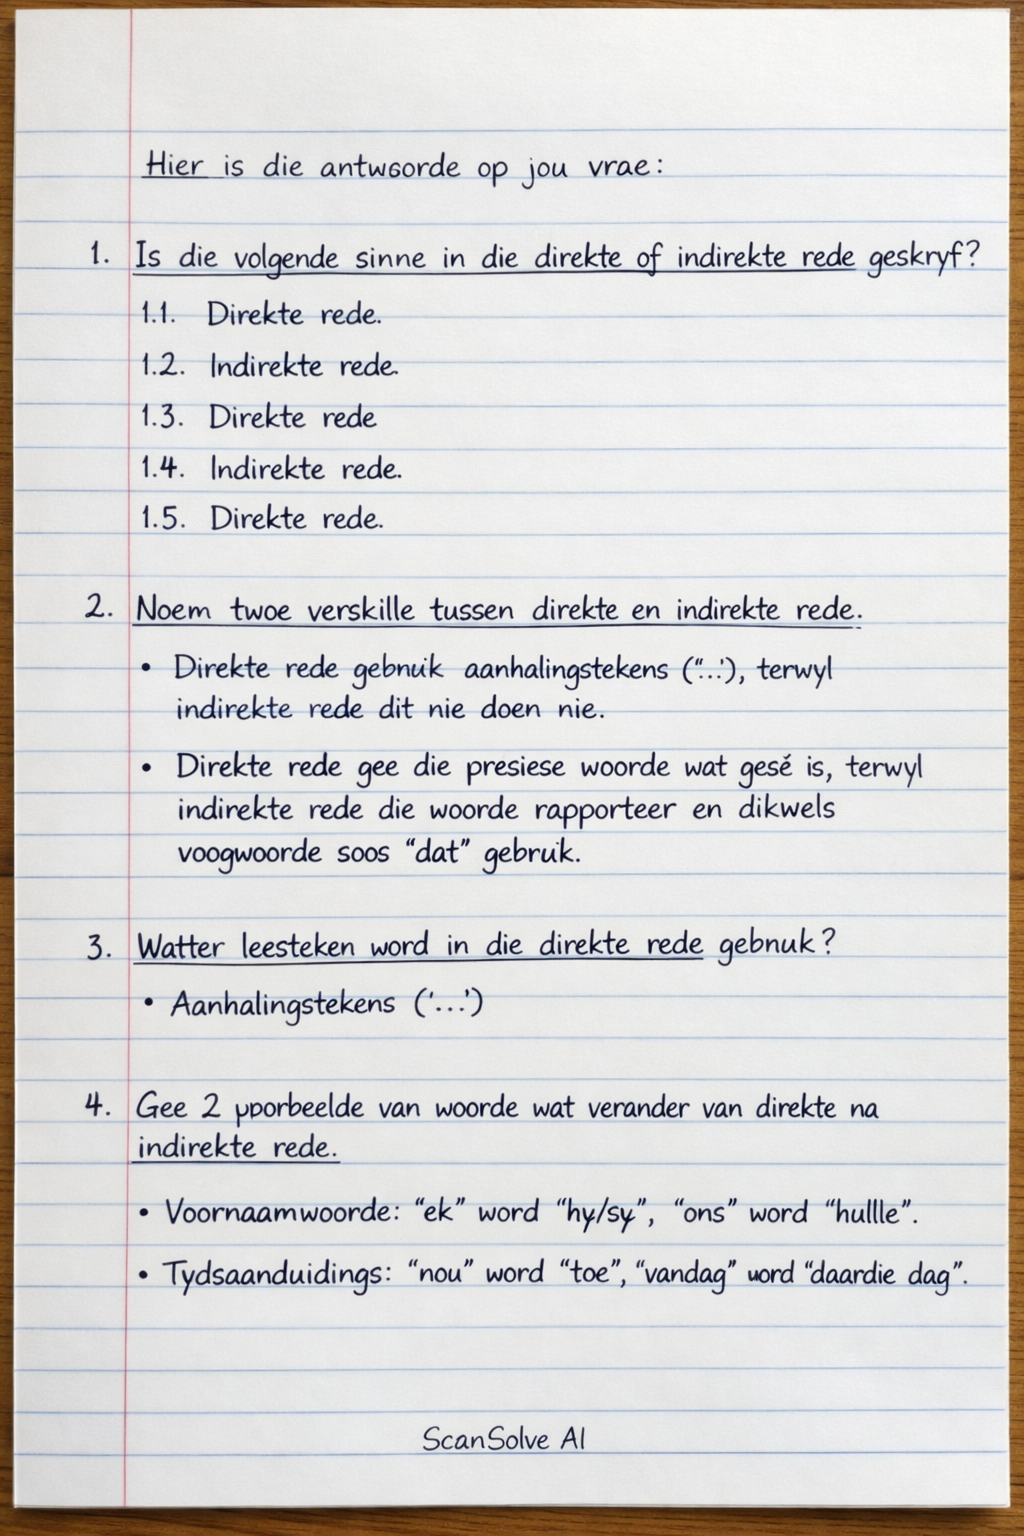 Hier is die antwoorde op jou vrae:
1. Is die volgende sinne in die direkte of indirekte rede geskryf?
1.1. Direkte rede.
1.2. Indirekte rede.
1.3. Direkte rede
1.4. Indirekte rede.
1.5. Direkte rede.
2. Noem twoe verskille tussen direkte en indirekte rede.
• Direkte rede gebnuik aanhalingstekens ("...'), terwyl
indirekte rede dit nie doen nie.
• Direkte rede gee die presiese woorde wat gesê is, terwyl
indirekte rede die woorde rapporteer en dikwels
voogwoorde soos “dat” gebruik.
3. Watter leesteken word in die direkte rede gebnuk?
• Aanhalingstekens ('...')
4. Gee 2 pporbeelde van woorde wat verander van direkte na
indirekte rede.
• Voornaamwoorde: “ek” word “hy/sy”, “ons” word “hullle”.
• Tydsaanduidings: “nou” word “toe”, “vandag” word “daardie dag”.
ScanSolve AI